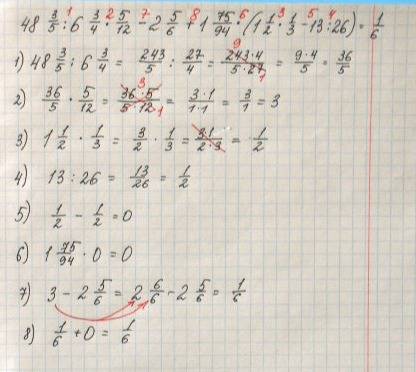 48 3/5 :¹ 6 3/4 ·² 5/12 -⁷ 2 5/6 +⁸ 1 75/94 ·⁶ (1 1/2 ·³ 1/3 -⁵ 13 :⁴ 26) = 1/6
1) 48 3/5 : 6 3/4 = 243/5 : 27/4 = 243·4/5·27 = 9·4/5 = 36/5
2) 36/5 · 5/12 = 36·5/5·12 = 3·1/1·1 = 3/1 = 3
3) 1 1/2 · 1/3 = 3/2 · 1/3 = 3·1/2·3 = 1/2
4) 13 : 26 = 13/26 = 1/2
5) 1/2 - 1/2 = 0
6) 1 75/94 · 0 = 0
7) 3 - 2 5/6 = 2 6/6 - 2 5/6 = 1/6
8) 1/6 + 0 = 1/6